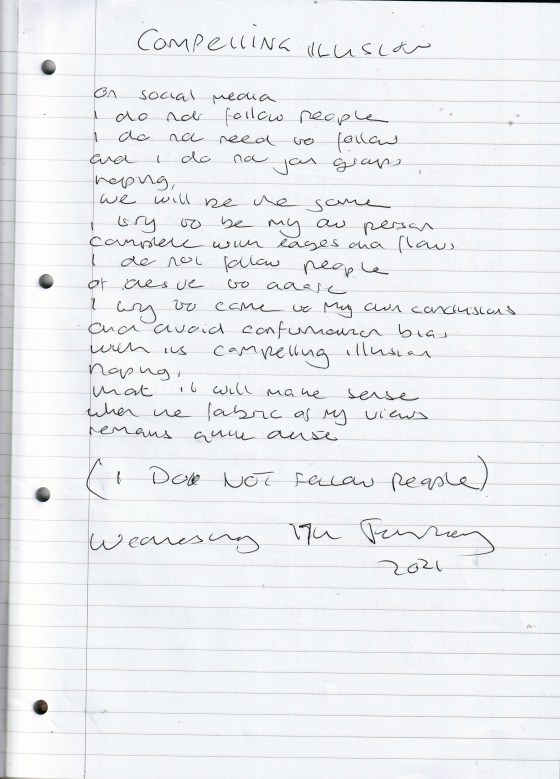 COMPELLING ILLUSION
On social media
I do not follow people
I do not need to follow
and I do not join groups
hoping,
we will be the same
I try to be my own person
complete with edges and flaws
I do not follow people
or desire to
I try to come to my own conclusions
and avoid confirmation bias
with its compelling illusion
hoping,
that it will make sense
when the fabric of my views
remains quite dense
(I DO NOT Follow People)
Wednesday 17th February
2021